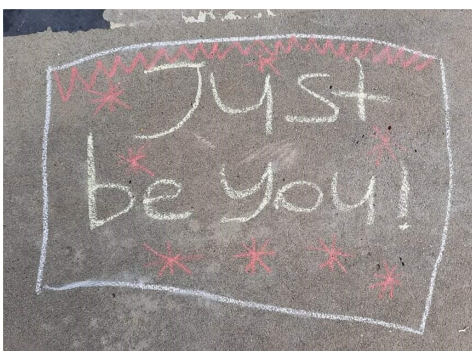 Just
be you!